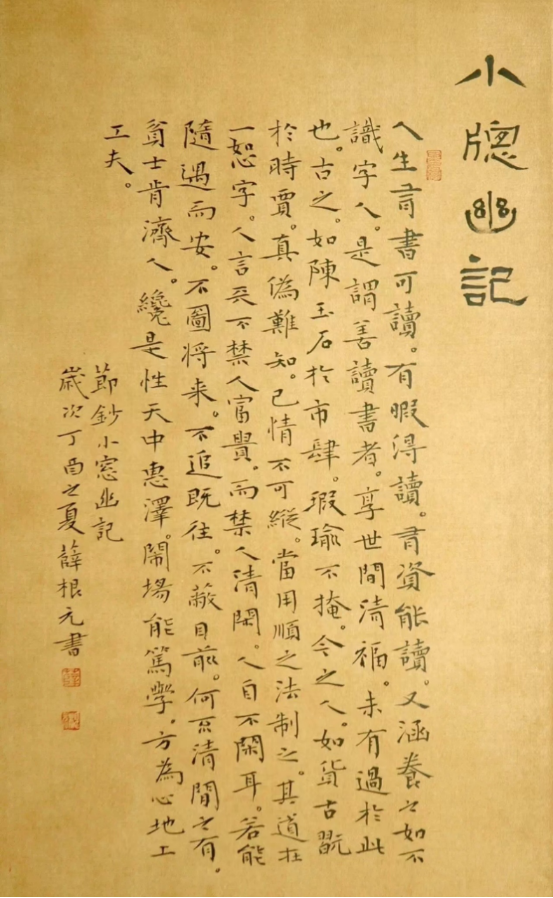 小牕幽記
人生有書可讀。有暇得讀。有資能讀。又涵養之如不
識字人。是謂善讀書者。享世間清福。未有過於此
也。古之。如陳玉石於市肆。瑕瑜不掩。今之人。如貨古翫
於時賈。真偽難知。己情不可縱。當用順之法制之。其道在
一恕字。人言天不禁人富貴。而禁人清閑。人自不閑耳。若能
隨遇而安。不圖将来。不追既往。不蔽目前。何不清閒之有。
貧士肯濟人。纔是性天中惠澤。鬧場能篤學。方為心地上
工夫。
節鈔小窓幽記
嵗次丁酉之夏薛根元書